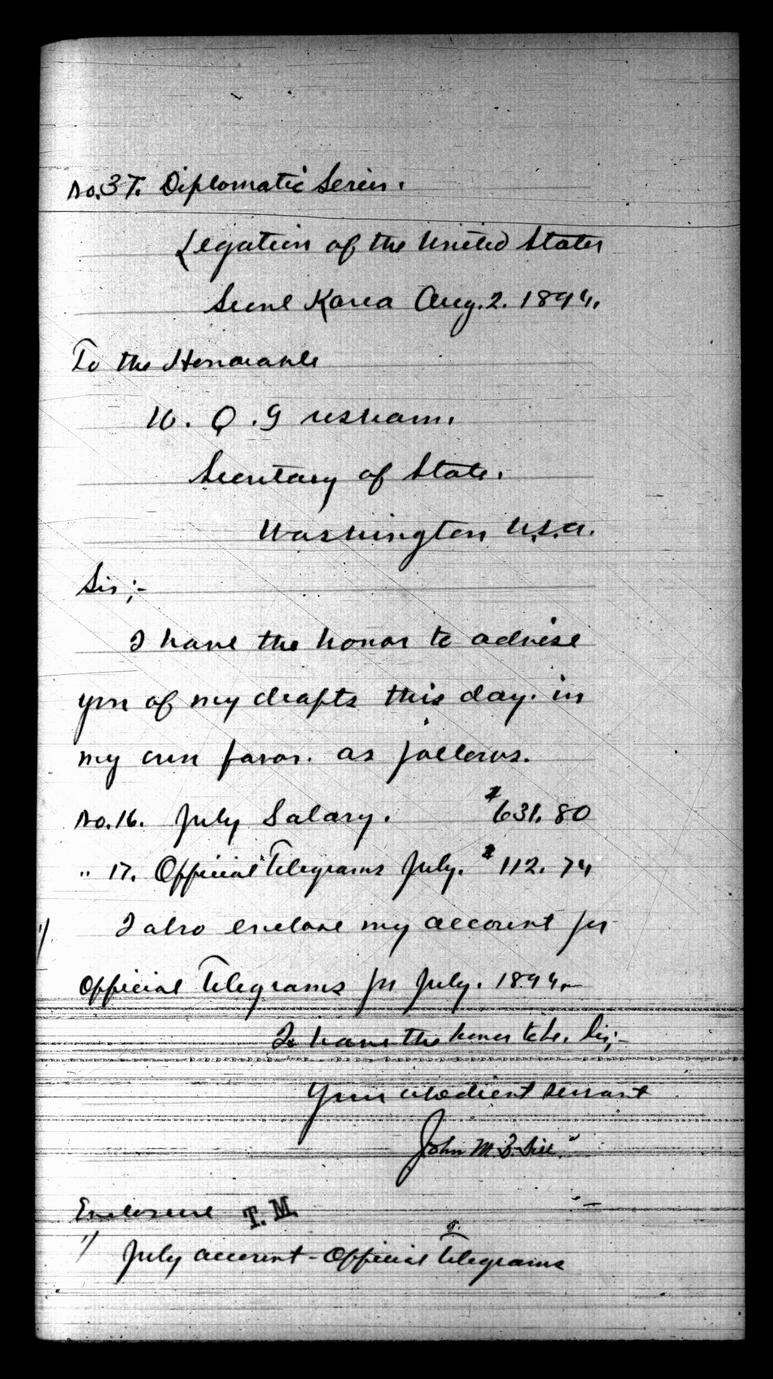 No. 37. Diplomatic Series.
Legation of the United States
Seoul Korea Aug. 2. 1894.
To the Honorable
W. Q. Gresham.
Secretary of State.
Washington U.S.a.
Sir;-
I have the honor to advise
you of my drafts this day. in
my own favor. as follows.
No. 16. July Salary. $631.80
" 17. Official Telegrams July. $112.74
1/ I also enclose my account for
Official Telegrams for July. 1894.
I have the honor to be. Sir;-
Your obedient servant
John M. B. Sill
Enclosure T. M.
1/ July account - Official Telegrams